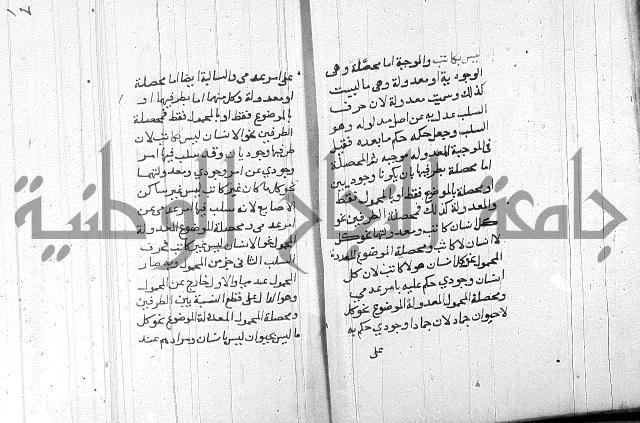 ليس بكاتب والموجبة اما محصلة وهى
الوجودية او معدولة وهى ما ليست
كذلك وسميت معدولة لان حرف
السلب عدل به عن اصل مدلوله وهو
السلب وجعل حكمه حكم ما بعده فقيل
فى الموجبة المعدوله موجبه ثم المحصلة
اما محصلة بطرفيها بان يكونا وجوديين
او محصلة بالموضوع فقط او بالمحمول فقط
والمعدولة كذلك فمحصلة الطرفين نحو
كل انسان كاتب ومعدولتهما نحو كل
لا انسان لا كاتب ومحصلة الموضوع المعدولة
المحمول نحو كل انسان هو لا كاتب لان كل
انسان وجودي حكم عليه بامر عدمي
ومحصلة المحمول المعدولة الموضوع نحو كل
لا حيوان جماد لان جمادا وجودي حكم به
على
على امر عدمى والسالبة ايضا اما محصلة
او معدولة وكل منهما اما بطرفيها او
بالموضوع فقط او بالمحمول فقط فمحصلة
الطرفين نحو الانسان ليس بكاتب لان
طرفيها وجوديان وقد سلب فيها امر
وجودي عن امر وجودي ومعدولتهما
نحو كل ما كان غير كاتب ليس غير ساكن
الاصابع لانه سلب فيها امر عدمى عن
امر عدمى ومحصلة الموضوع المعدولة
المحمول نحو الانسان ليس غير كاتب فحرف
السلب الثانى جزء من المحمول وبه صار
المحمول عدميا والاول خارج عن المحمول
وهو الدال على قطع النسبة بين الطرفين
ومحصلة المحمول المعدولة الموضوع نحو كل
ما ليس بحيوان ليس بانسان ومرادهم عند
جامعة النجاح الوطنية